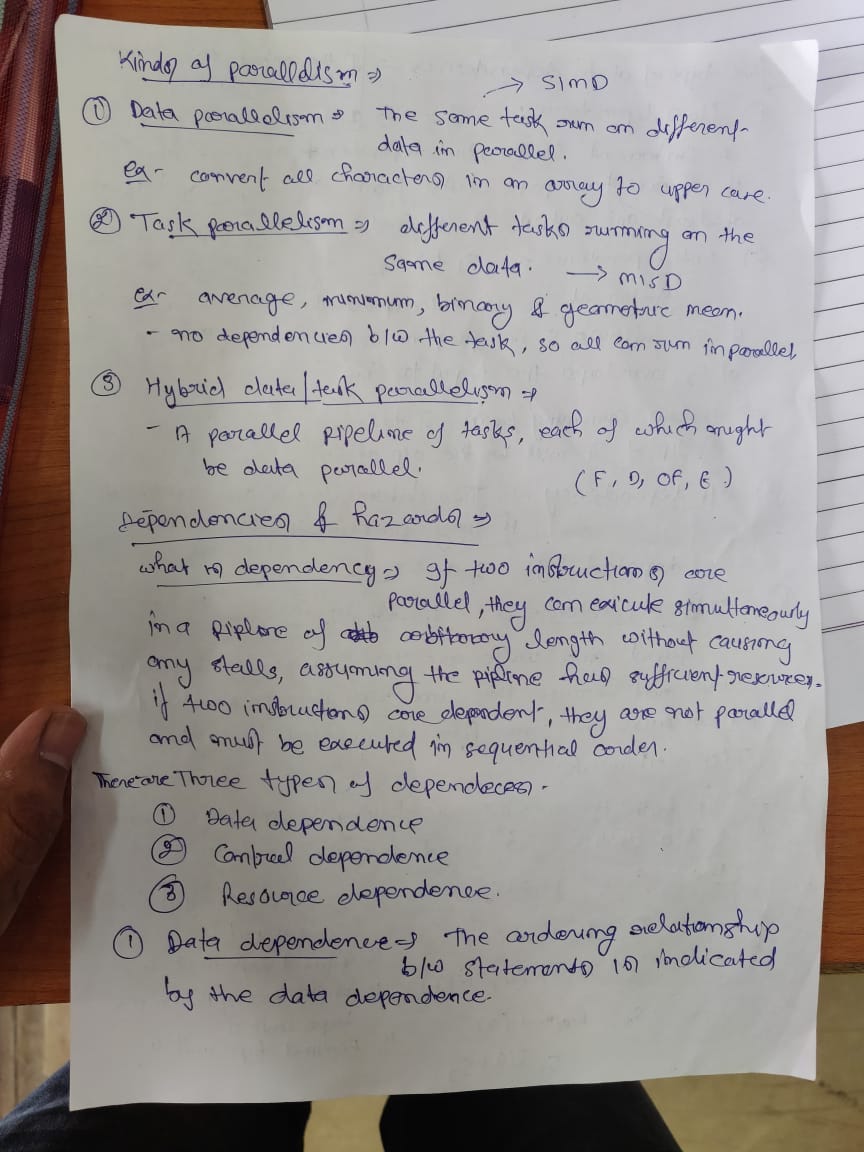 Kinds of parallelism ⇒
→ SIMD
① Data parallelism ⇒ The same task run on different
data in parallel.
ex- convert all characters in an array to upper case.
② Task parallelism ⇒ different tasks running on the
same data. → MISD
ex- average, minimum, binary & geometric mean.
- no dependencies b/w the task, so all can run in parallel
③ Hybrid data/task parallelism ⇒
- A parallel pipeline of tasks, each of which might
be data parallel.
(F, D, OF, E)
Dependencies & hazards ⇒
what is dependency ⇒ If two instructions are
parallel, they can exicute simultaneously
in a pipline of arbitrary length without causing
any stalls, assuming the pipline has sufficient resources.
if two instructions are dependent, they are not parallel
and must be executed in sequential order.
There are Three types of dependeces -
① Data dependence
② Control dependence
③ Resource dependence.
① Data dependence ⇒ The ordering relationship
b/w statements is indicated
by the data dependence.